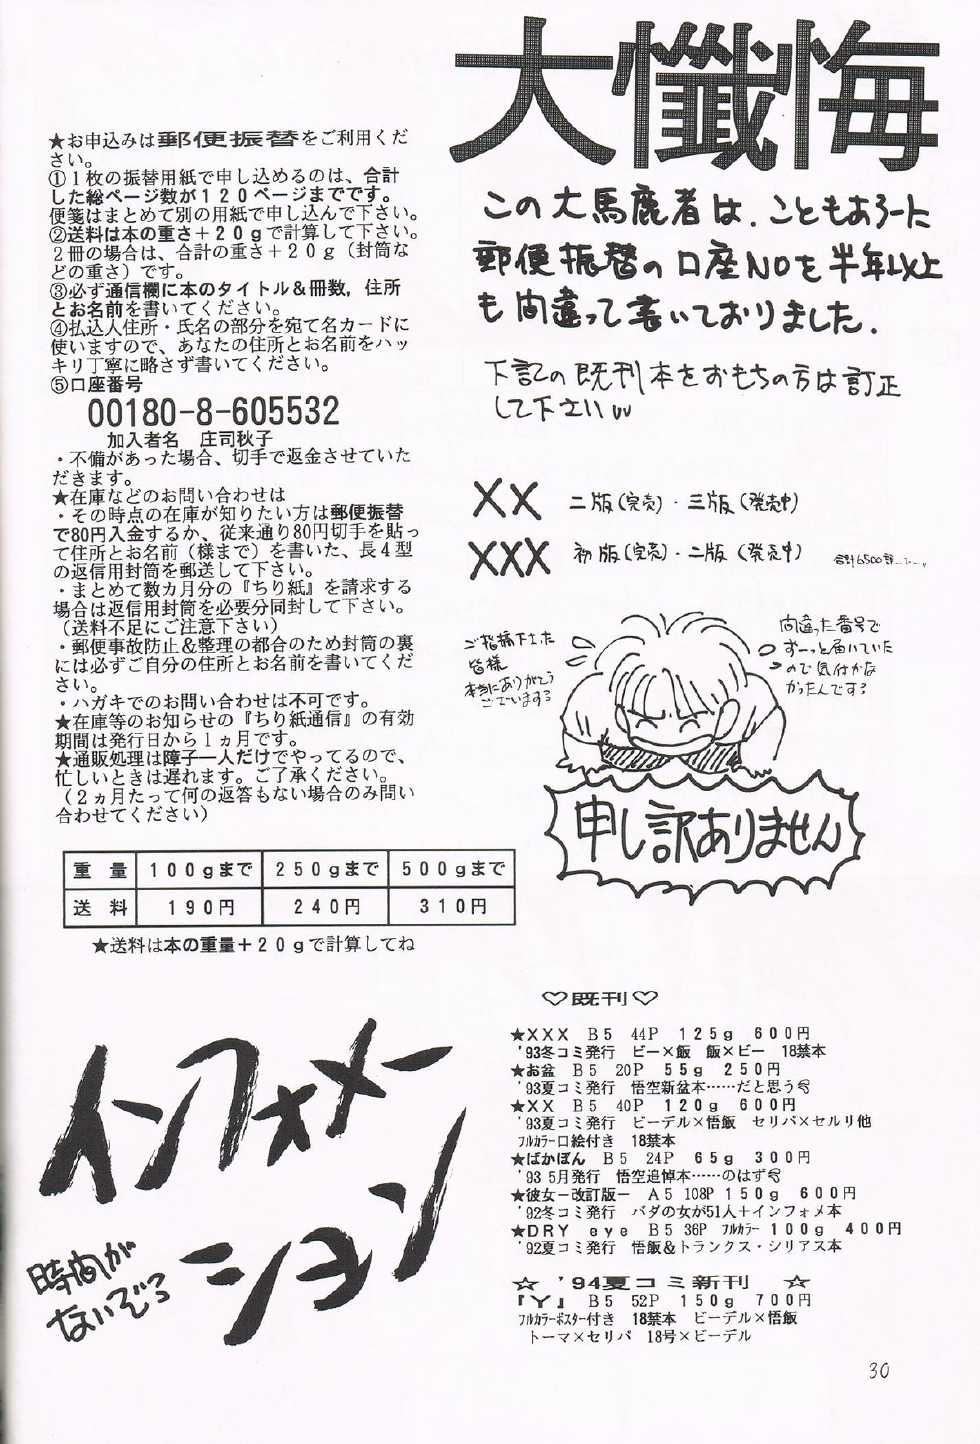 大懺悔
この大馬鹿者は、こともあろーに
郵便振替の口座NOを半年以上
も間違って書いておりました.
下記の既刊本をおもちの方は訂正
して下さい
XX 二版(完売)・三版(発売中)
XXX 初版(完売)・二版(発売中)
合計6500部
ご指摘下さった
皆様
本当にありがとう
ございます
間違った番号で
ずーっと届いていた
ので気付かな
かったんです
申し訳ありません
★お申込みは郵便振替をご利用くだ
さい。
①1枚の振替用紙で申し込めるのは、合計
した総ページ数が120ページまでです。
便箋はまとめて別の用紙で申し込んで下さい。
②送料は本の重さ+20gで計算して下さい。
2冊の場合は、合計の重さ+20g(封筒な
どの重さ)です。
③必ず通信欄に本のタイトル&冊数,住所
とお名前を書いてください。
④払込人住所・氏名の部分を宛て名カードに
使いますので、あなたの住所とお名前をハッ
キリ丁寧に略さず書いてください。
⑤口座番号
00180-8-605532
加入者名 庄司秋子
・不備があった場合、切手で返金させていた
だきます。
★在庫などのお問い合わせは
・その時点の在庫が知りたい方は郵便振替
で80円入金するか、従来通り80円切手を貼っ
て住所とお名前(様まで)を書いた、長4型
の返信用封筒を郵送して下さい。
・まとめて数カ月分の『ちり紙』を請求する
場合は返信用封筒を必要分同封して下さい。
(送料不足にご注意下さい)
・郵便事故防止&整理の都合のため封筒の裏
には必ずご自分の住所とお名前を書いてくだ
さい。
・ハガキでのお問い合わせは不可です。
★在庫等のお知らせの『ちり紙通信』の有効
期間は発行日から1ヵ月です。
★通販処理は障子一人だけでやってるので、
忙しいときは遅れます。ご了承ください。
(2ヵ月たって何の返答もない場合のみ問い
合わせてください)
重量 100gまで 250gまで 500gまで
送料 190円 240円 310円
★送料は本の重量+20gで計算してね
インフォメー
ション
時間が
ないぞっ
♡既刊♡
★XXX B5 44P 125g 600円
'93冬コミ発行 ビー×飯 飯×ビー 18禁本
★お盆 B5 20P 55g 250円
'93夏コミ発行 悟空新盆本……だと思う
★XX B5 40P 120g 600円
'93夏コミ発行 ビーデル×悟飯 セリパ×セルリ他
フルカラー口絵付き 18禁本
★ばかぼん B5 24P 65g 300円
'93 5月発行 悟空追悼本……のはず
★彼女-改訂版- A5 108P 150g 600円
'92冬コミ発行 バダの女が51人+インフォメ本
★DRY eye B5 36P フルカラー 100g 400円
'92夏コミ発行 悟飯&トランクス・シリアス本
☆ '94夏コミ新刊 ☆
『Y』 B5 52P 150g 700円
フルカラーポスター付き 18禁本 ビーデル×悟飯
トーマ×セリパ 18号×ビーデル
30